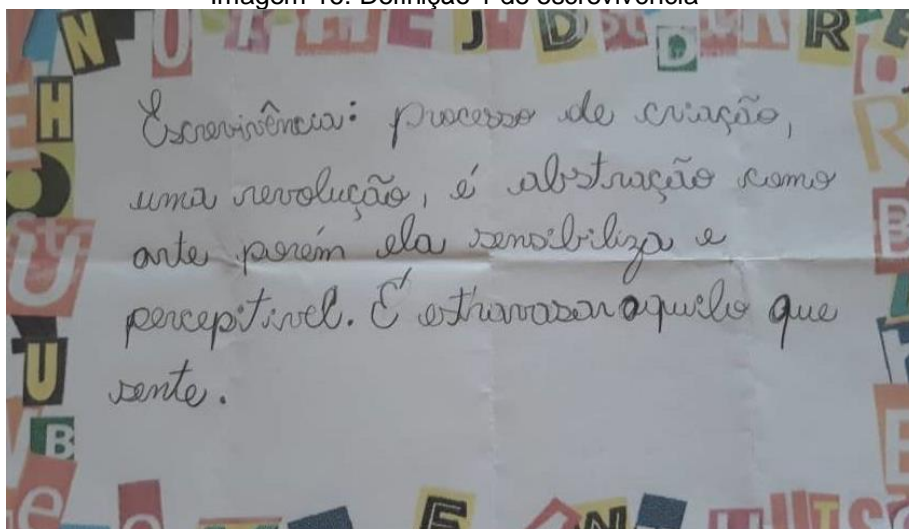 Imagem 16: Definição 1 de escrevivência
Escrevivência: processo de criação,
uma revolução, é abstração como
arte porém ela sensibiliza e
perceptivel. É extravasar aquilo que
sente.